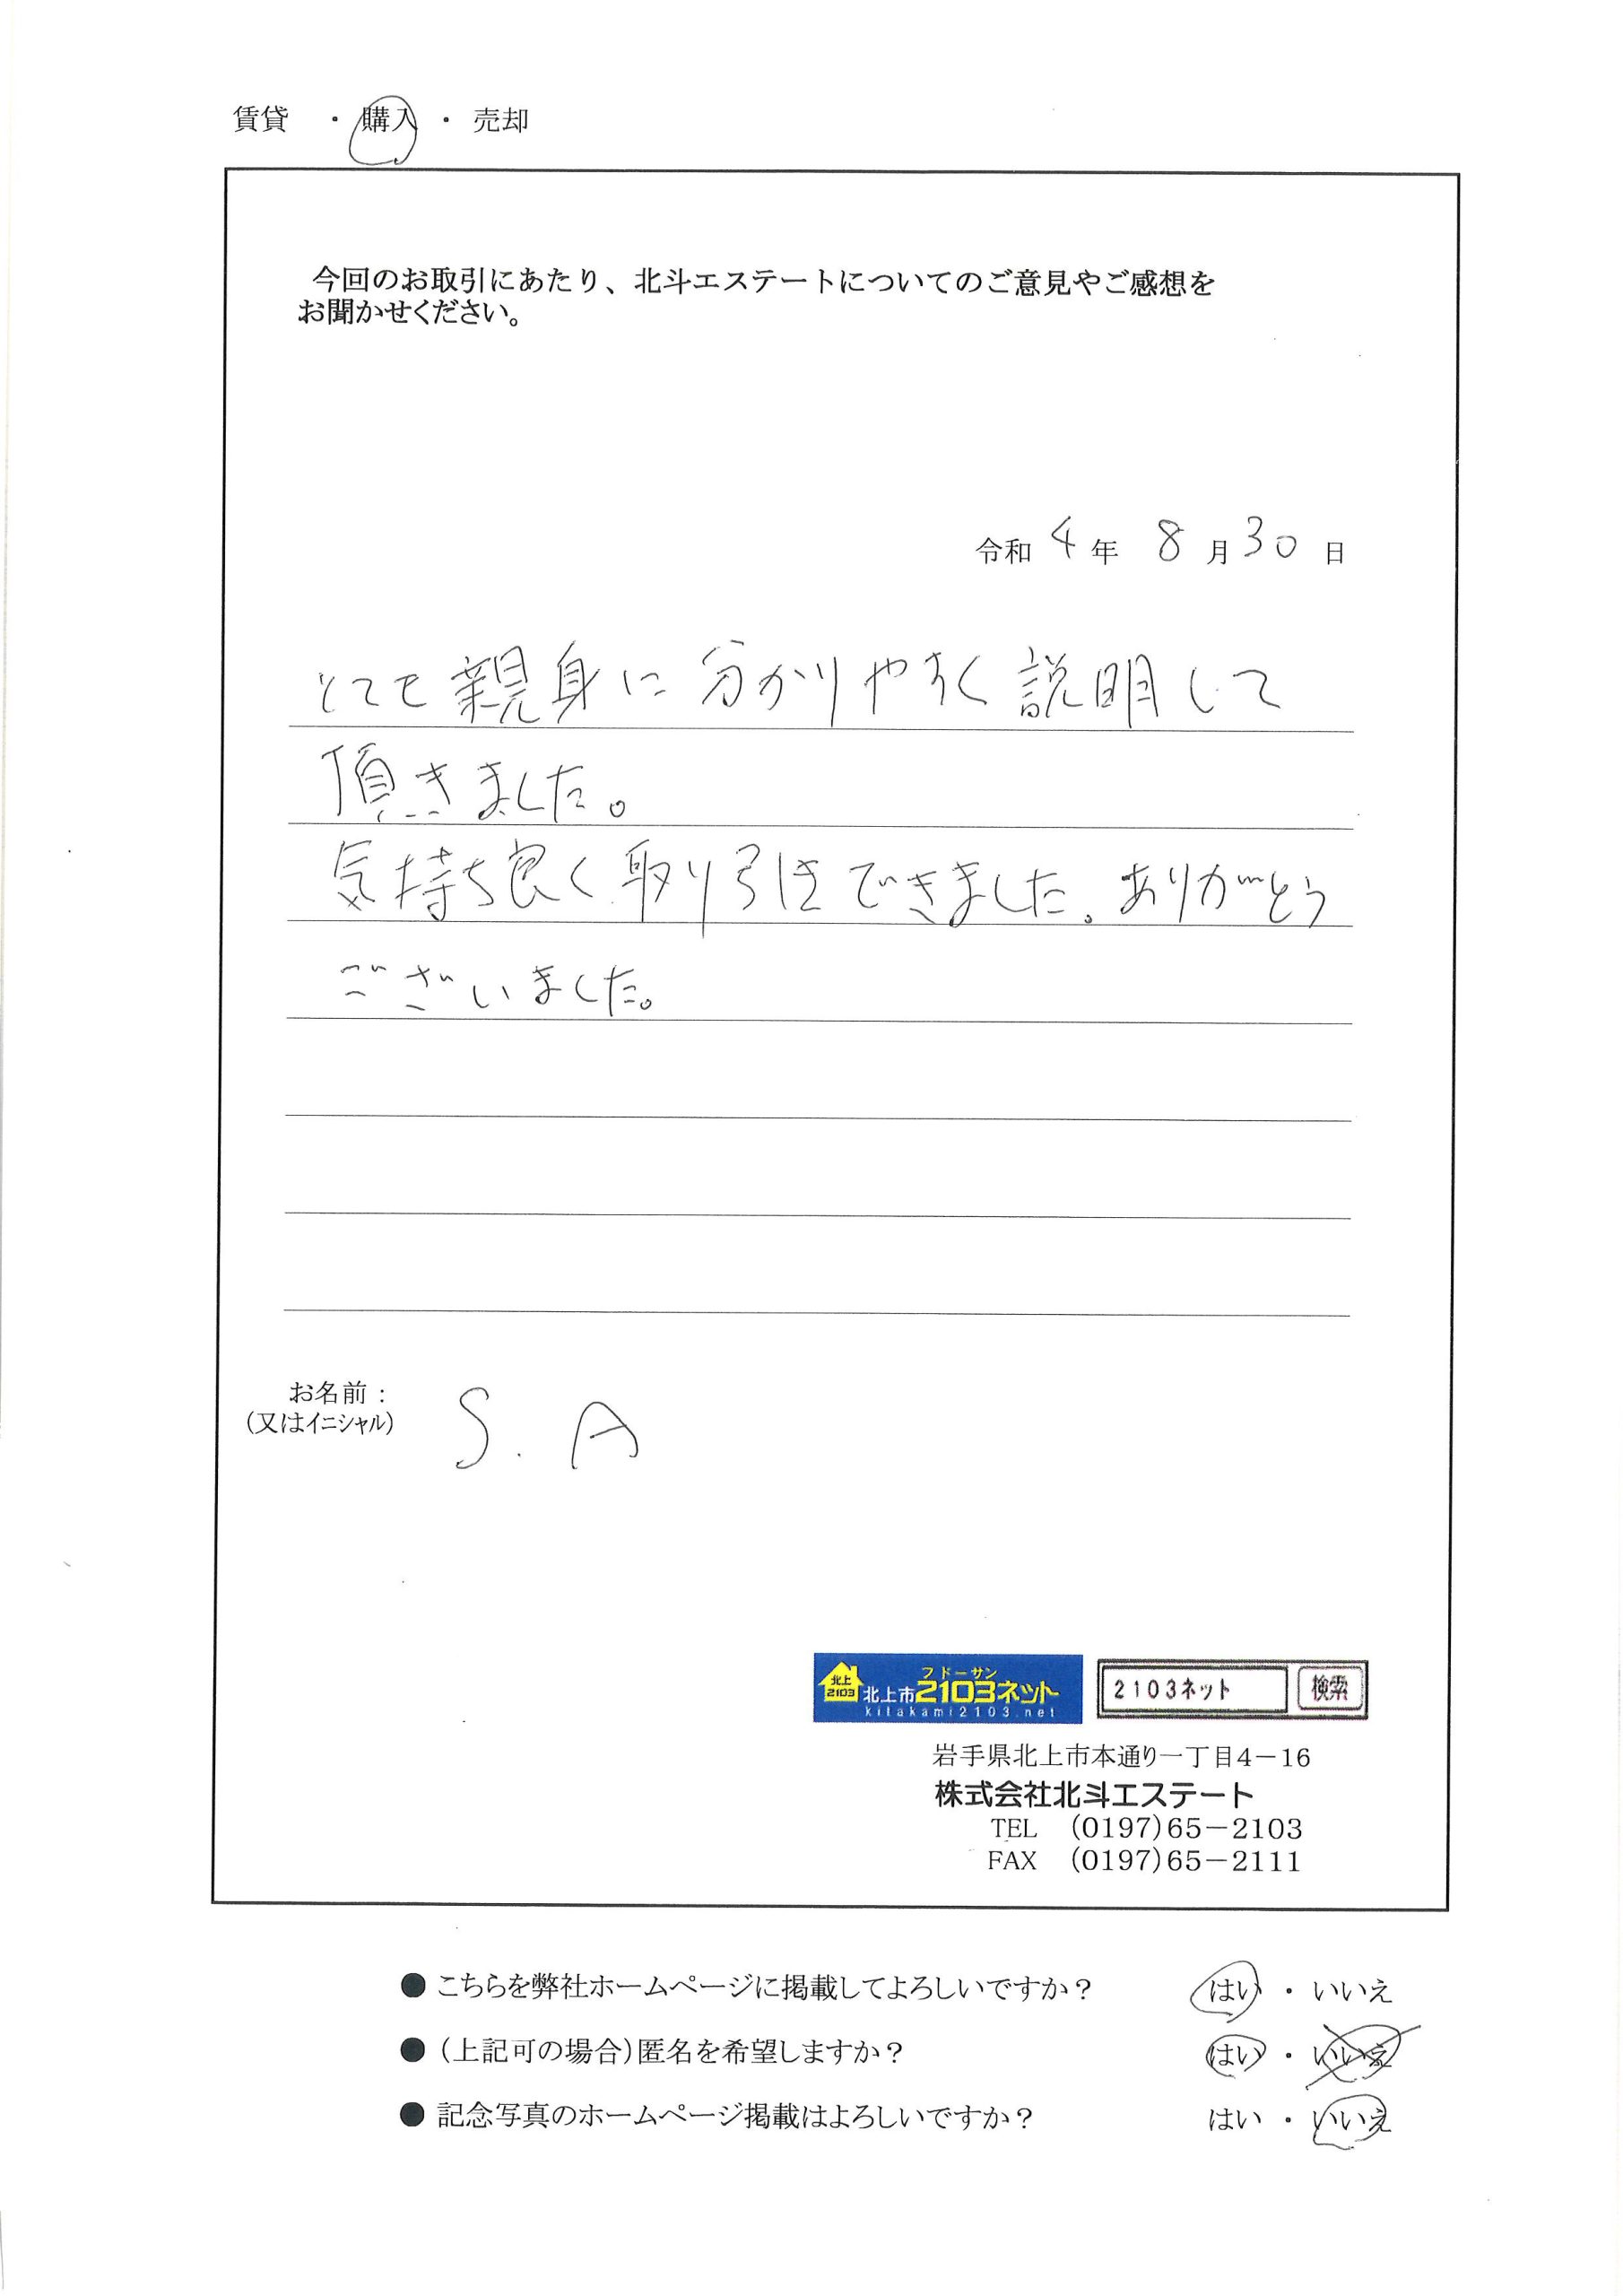 賃貸 ・ 購入 ・ 売却
今回のお取引にあたり、北斗エステートについてのご意見やご感想を
お聞かせください。
令和 4 年 8 月 30 日
とても親身に分かりやすく説明して
頂きました。
気持ち良く取り引きできました。ありがとう
ございました。
お名前：
（又はイニシャル）
S. A
北上
2103
フドーサン
北上市2103ネット
kitakami2103.net
2103ネット 検索
岩手県北上市本通り一丁目4－16
株式会社北斗エステート
TEL （0197）65－2103
FAX （0197）65－2111
● こちらを弊社ホームページに掲載してよろしいですか？ はい ・ いいえ
● （上記可の場合）匿名を希望しますか？ はい ・ いいえ
● 記念写真のホームページ掲載はよろしいですか？ はい ・ いいえ